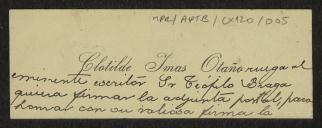 MPR/APTB/CX120/005
Clotilde Imas Otaño ruega al
eminente escritor Sr Teófilo Braga
quiera firmar la adjunta postal, para
honrar con su valiosa firma la